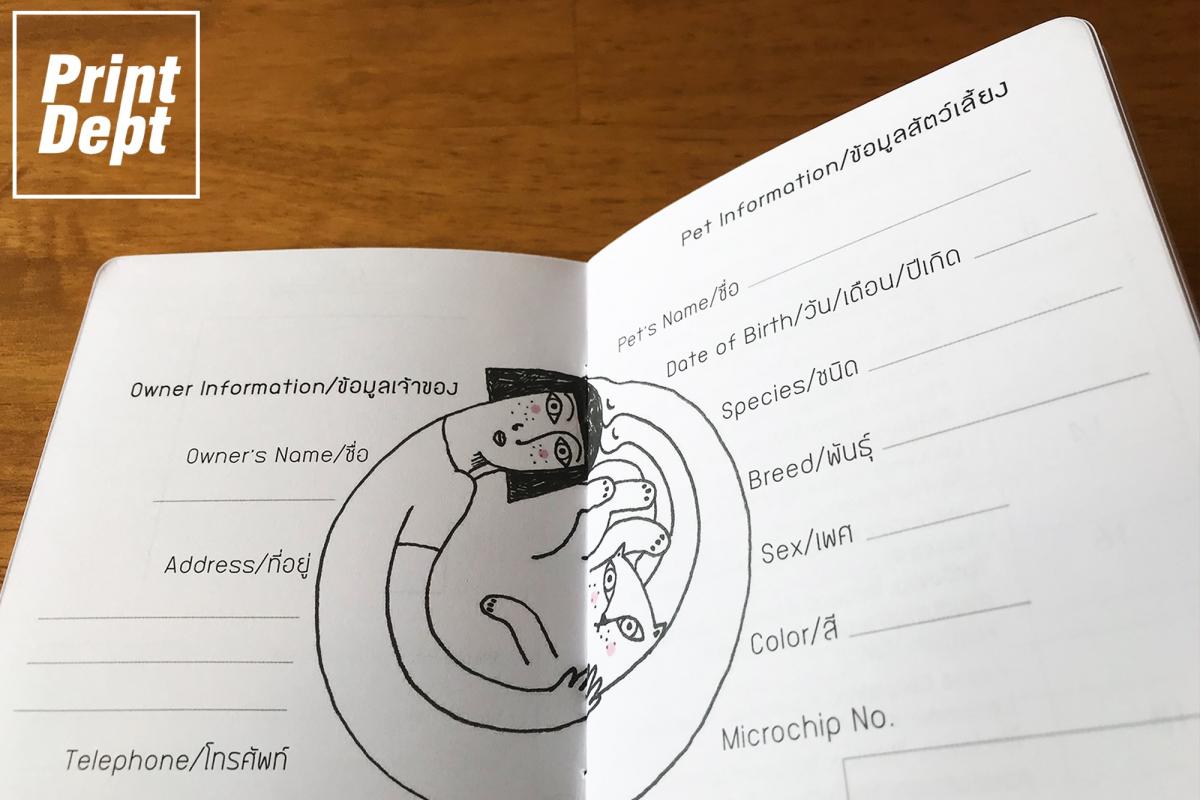 Print
Dept
Owner Information/ข้อมูลเจ้าของ
Owner's Name/ชื่อ
Address/ที่อยู่
Telephone/โทรศัพท์
Pet Information/ข้อมูลสัตว์เลี้ยง
Pet's Name/ชื่อ
Date of Birth/วัน/เดือน/ปีเกิด
Species/ชนิด
Breed/พันธุ์
Sex/เพศ
Color/สี
Microchip No.